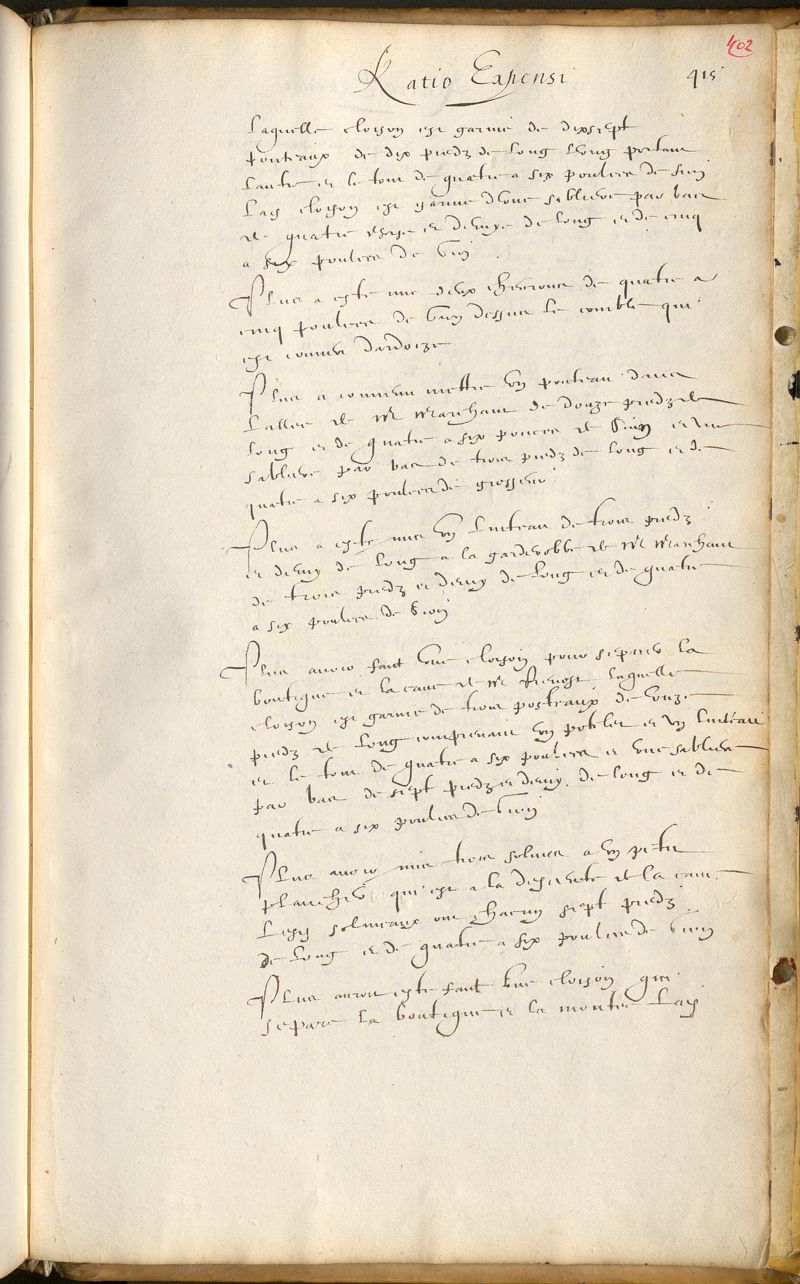 402
Ratio Expensi 415
Laquelle cloison est garnie de dixsept
poteaulx de dix piedz de long l'ung portant
l'autre et le tout de quatre a six poulces de
Lad cloison est garnie d'une sabliere par bas
de quatre et demye de long et de cinq
a six poulces de
Plus a este mis deux chevrons de quatre a
cinq poulces de dessus le comble qui
est couvert d'ardoize
Plus a convenu mettre ung posteau dans
l'allee de Mr Marchant de douze piedz de
long et de quatre a six poulces de et une
sabliere par bas de trois piedz de long et de
quatre a six poulces de grosseur
Plus a este mis ung linteau de trois piedz
et demy de long a la garderobbe de Mr Marchant
de trois piedz et demy de long et de quatre
a six poulces de
Plus avoir faict une cloison pour separer la
boutique et la cave de Mr laquelle
cloison est garnie de trois posteaux de unze
piedz de long comprenant ung potelet et ung linteau
et le tout de quatre a six poulces et une sabliere
par bas de sept piedz et demy de long et de
quatre a six poulces de
Plus avoir mis trois solives a ung petit
plancher qui est a la descente de la cave
Lesd soliveaux ont chacun sept piedz
de long et de quatre a six poulces de
Plus avoir este faict une cloison qui
separe la boutique et la montee Lad